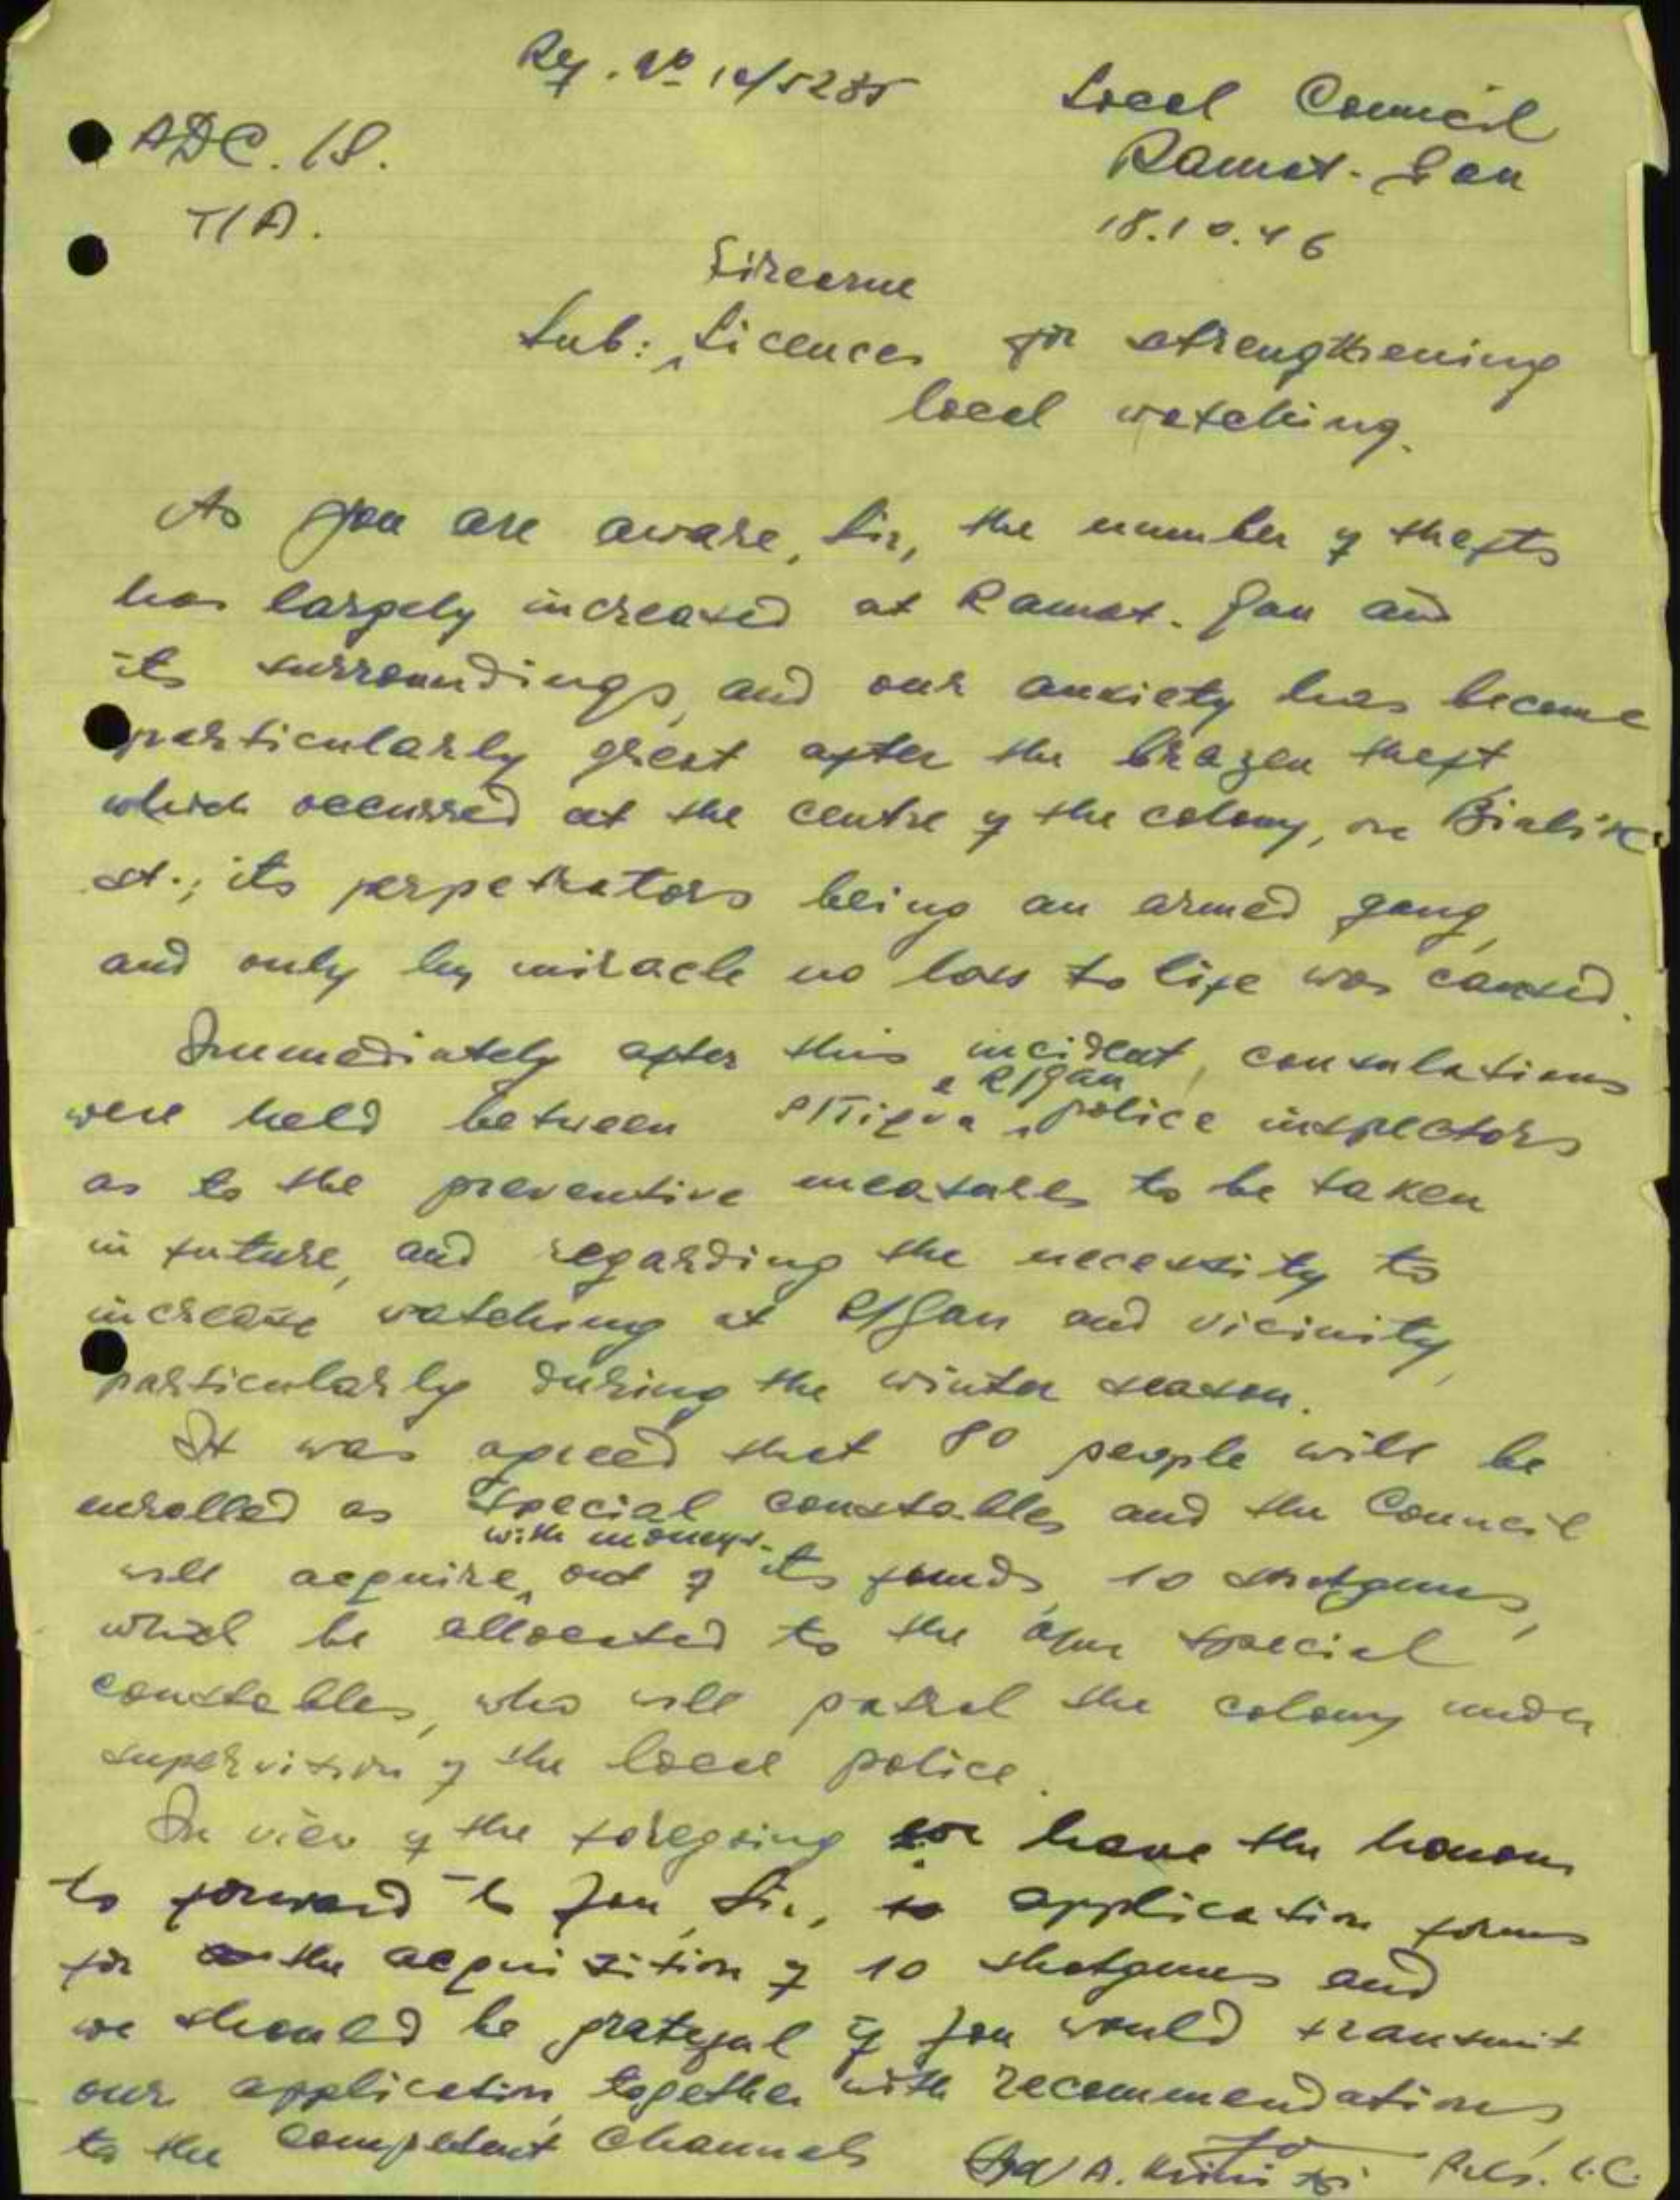 Ref. No 10/5285
Local Council
Ramat-Gan
18.10.46
ADC. 18.
T/A.
Firearm
Sub: Licences for strengthening
local watching.
As you are aware, Sir, the number of thefts
has largely increased at Ramat-Gan and
its surroundings, and our anxiety has become
particularly great after the brazen theft
which occurred at the centre of the colony, on Bialik
st.; its perpetrators being an armed gang,
and only by miracle no loss to life was caused.
Immediately after this incident, consulations
& R/Gan
were held between P/Tiqva police inspectors
as to the preventive measures to be taken
in future, and regarding the necessity to
increase watching at R/Gan and vicinity,
particularly during the winter season.
It was agreed that 80 people will be
enrolled as special constables and the Council
with moneys
will acquire, out of its funds, 10 shotguns,
which be allocated to the special
constables, who will patrol the colony under
supervision of the local police.
In view of the foregoing we have the honour
to forward to you, Sir, application forms
for the acquisition of 10 shotguns and
we should be grateful if you would transmit
our application, together with recommendations,
to the competent channels
A. Krinitzi Pres. L.C.